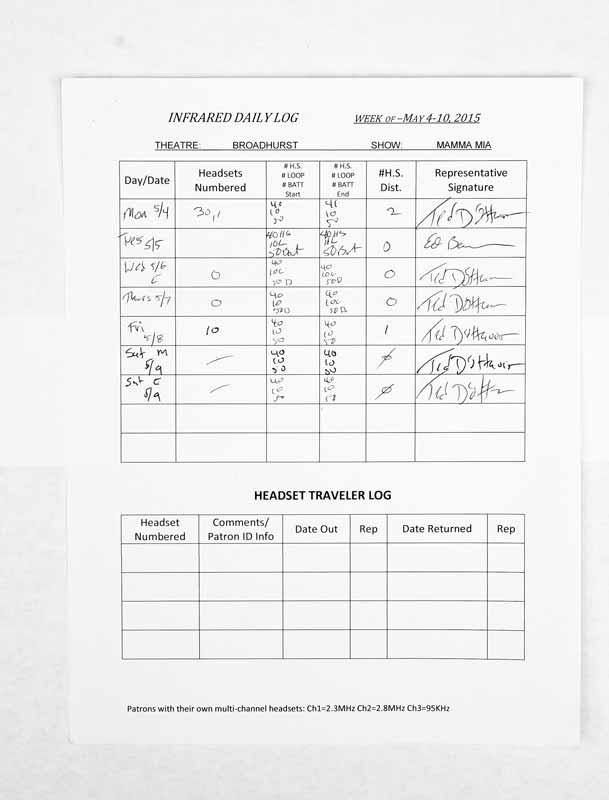 INFRARED DAILY LOG WEEK OF –MAY 4-10, 2015
THEATRE: BROADHURST SHOW: MAMMA MIA
Day/Date Headsets Numbered # H.S. # LOOP # BATT Start # H.S. # LOOP # BATT End #H.S. Dist. Representative Signature
Mon 5/4 30,1 40 10 50 41 10 50 2 Ted D
Tues 5/5 40 HS 10L 50 Bat 40 HS 10L 50 Bat 0 Ed
Wed 5/6 E 0 40 10L 50 D 40 10L 50D 0 Ted D
Thurs 5/7 0 40 10 50D 40 10L 50D 0 Ted D
Fri 5/8 10 40 10 50 40 10 50 1 Ted D
Sat M 5/9 — 40 10 50 40 10 50 Ø Ted D
Sat E 5/9 — 40 10 50 40 10 50 Ø Ted D
HEADSET TRAVELER LOG
Headset Numbered Comments/ Patron ID Info Date Out Rep Date Returned Rep
Patrons with their own multi-channel headsets: Ch1=2.3MHz Ch2=2.8MHz Ch3=95KHz